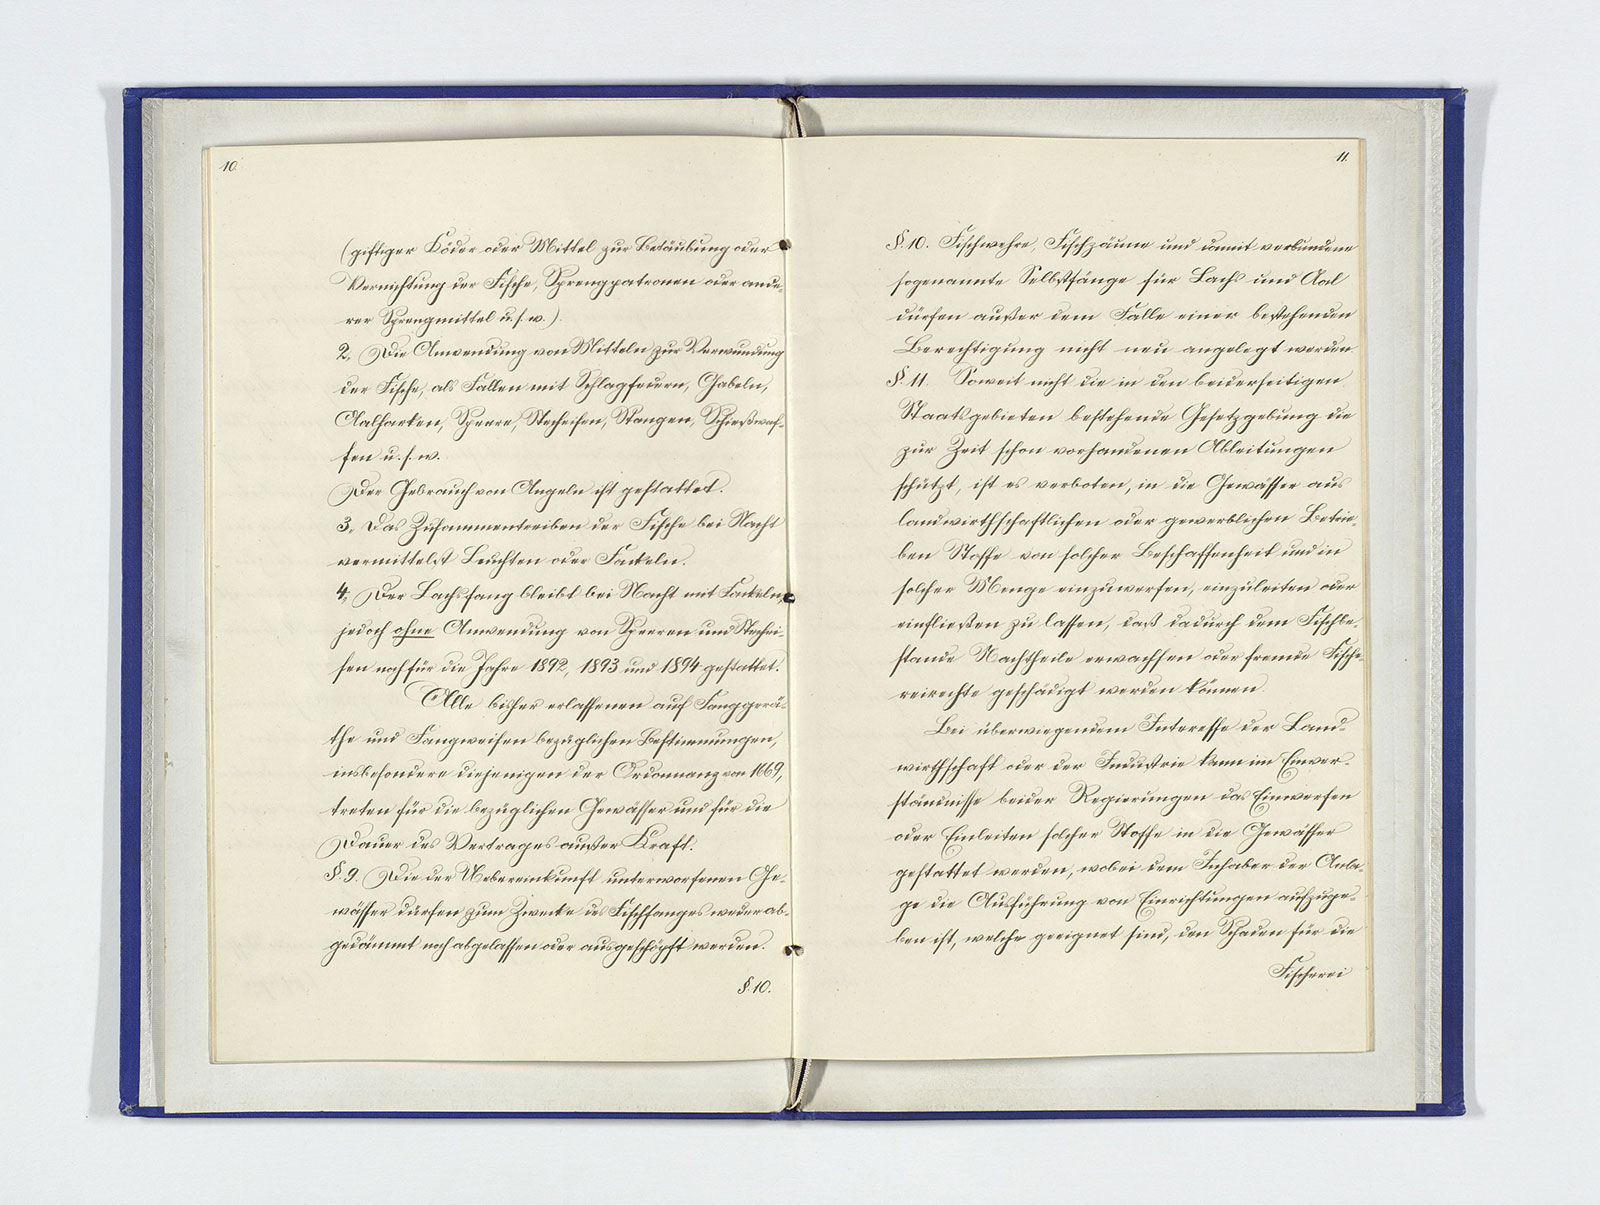 10.
(giftiger Köder oder Mittel zur Betäubung oder
Vernichtung der Fische, Sprengpatronen oder ande-
rer Sprengmittel u. s. w.).
2., Die Anwendung von Mitteln zur Verwundung
der Fische, als Fallen mit Schlagfedern, Gabeln,
Aalharken, Speere, Stecheisen, Stangen, Schießwaf-
fen u. s. w.
Der Gebrauch von Angeln ist gestattet.
3., Das Zusammentreiben der Fische bei Nacht
vermittelst Leuchten oder Fackeln.
4., Der Lachsfang bleibt bei Nacht mit Fackeln,
jedoch ohne Anwendung von Speeren und Stechei-
sen noch für die Jahre 1892, 1893 und 1894 gestattet.
Alle bisher erlassenen auf Fanggerä-
the und Fangweisen bezüglichen Bestimmungen,
insbesondere diejenigen der Ordonnanz von 1669,
treten für die bezüglichen Gewässer und für die
Dauer des Vertrages außer Kraft.
§ 9. Die der Uebereinkunft unterworfenen Ge-
wässer dürfen zum Zwecke des Fischfanges weder ab-
gedämmt noch abgelassen oder ausgeschöpft werden.
§. 10.
11.
§. 10. Fischwehre, Fischzäune und damit verbundene
sogenannte Selbstfänge für Lachs und Aal
dürfen außer dem Falle einer bestehenden
Berechtigung nicht neu angelegt werden.
§. 11. Soweit nicht die in den beiderseitigen
Staatsgebieten bestehende Gesetzgebung die
zur Zeit schon vorhandenen Ableitungen
schützt, ist es verboten, in die Gewässer aus
landwirthschaftlichen oder gewerblichen Betrie-
ben Stoffe von solcher Beschaffenheit und in
solcher Menge einzuwerfen, einzuleiten oder
einfließen zu lassen, daß dadurch dem Fischbe-
stande Nachtheile erwachsen oder fremde Fische-
reirechte geschädigt werden können.
Bei überwiegendem Interesse der Land-
wirthschaft oder der Industrie kann im Einver-
ständnisse beider Regierungen das Einwerfen
oder Einleiten solcher Stoffe in die Gewässer
gestattet werden, wobei dem Inhaber der Anla-
ge die Ausführung von Einrichtungen aufzuge-
ben ist, welche geeignet sind, den Schaden für die
Fischerei